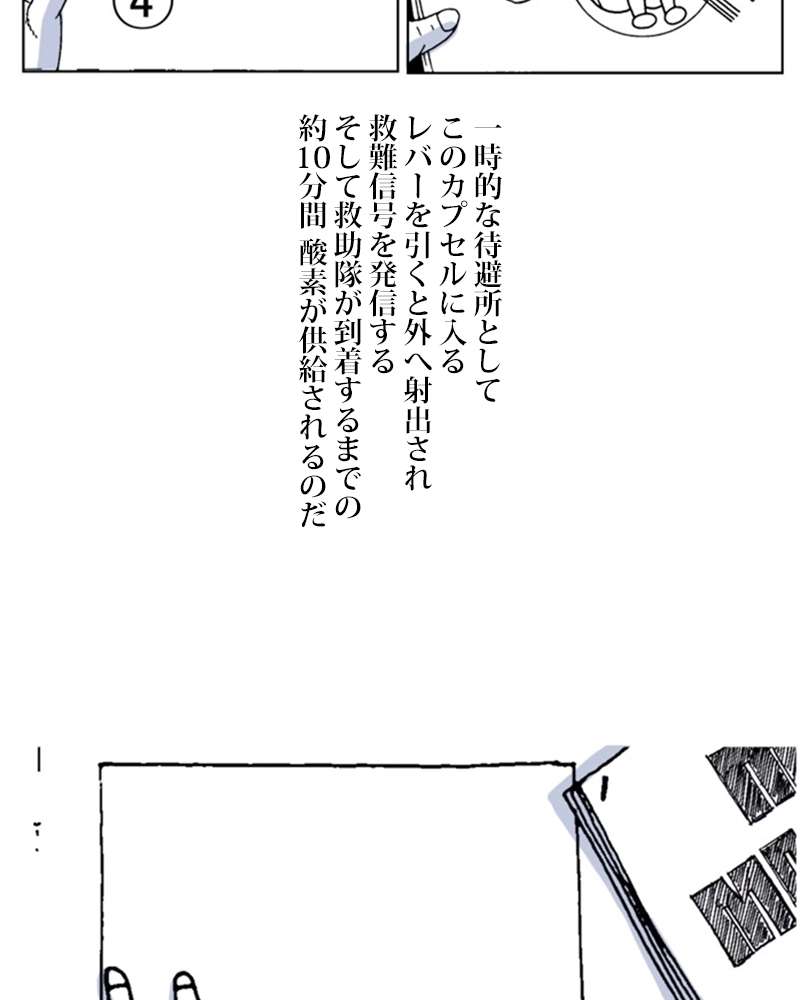 ④
一時的な待避所として
このカプセルに入る
レバーを引くと外へ射出され
救難信号を発信する
そして救助隊が到着するまでの
約10分間 酸素が供給されるのだ